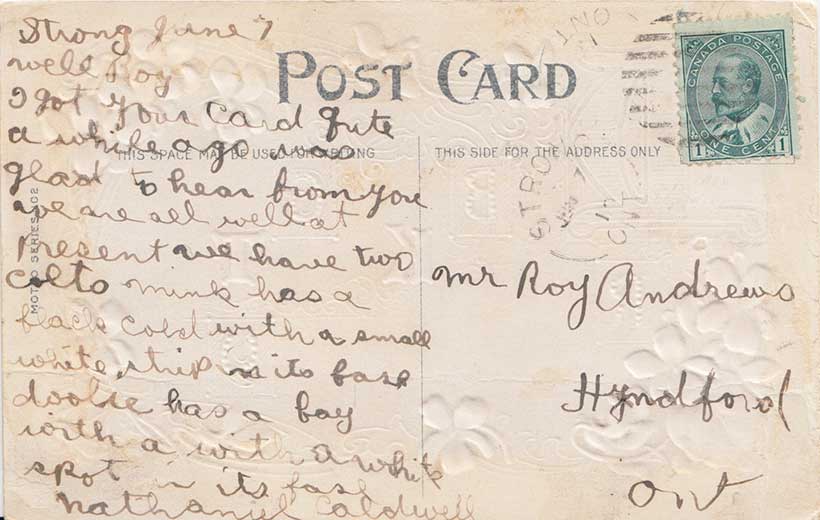 Strong June 7
well Roy
I got your Card quite
a while ago was
glad to hear from you
we are all well at
Present we have two
colts mink has a
black cold with a small
white strip in its fase
doolie has a bay
with a with a white
spot in its fase
Nathaniel Caldwell
POST CARD
THIS SPACE MAY BE USED FOR WRITING
THIS SIDE FOR THE ADDRESS ONLY
MOTTO SERIES 302
CANADA POSTAGE
ONE CENT
1 1
ONT
STRO
7
10
ONT
mr Roy Andrews
Hyndford
Ont